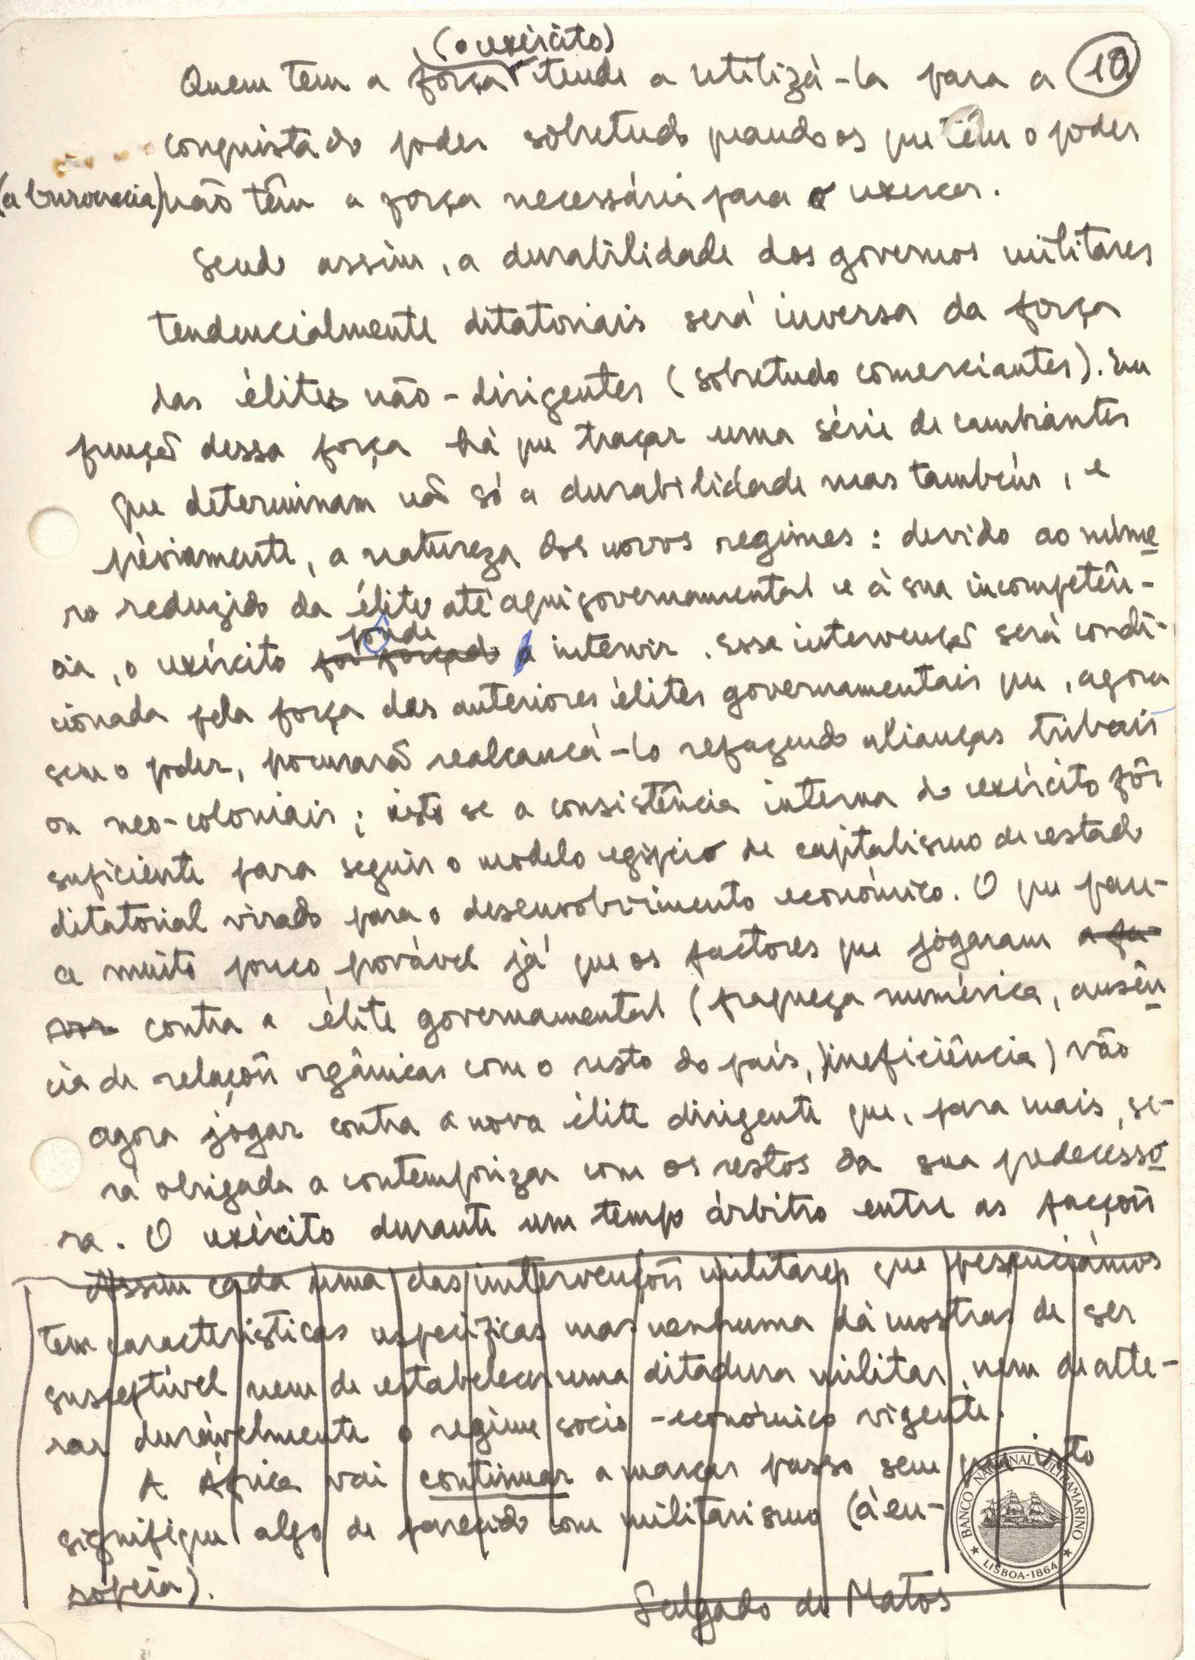 (o exército)
Quem tem a força tende a utilizá-la para a 10
conquista do poder sobretudo quando os que têm o poder
(a burocracia) não têm a força necessária para o exercer.
Sendo assim, a durabilidade dos governos militares
tendencialmente ditatoriais será inversa da força
das élites não-dirigentes (sobretudo comerciantes). Em
função dessa força há que traçar uma série de cambiantes
que determinam não só a durabilidade mas também, e
prèviamente, a natureza dos novos regimes: devido ao núme
ro reduzido da élite até aqui governamental e à sua incompetên-
cia, o exército foi forçado pôde a intervir. Essa intervenção será condi-
cionada pela força das anteriores élites governamentais que, agora
sem o poder, procurarão realcançá-lo refazendo alianças tribais
ou neo-coloniais; isto se a consistência interna do exército fôr
suficiente para seguir o modelo egípcio de capitalismo de estado
ditatorial virado para o desenvolvimento económico. O que pare-
ce muito pouco provável já que os factores que jogaram
contra a élite governamental (fraqueza numérica, ausên
cia de relações orgânicas com o resto do país, ineficiência) vão
agora jogar contra a nova élite dirigente que, para mais, se-
rá obrigada a contemporizar com os restos da sua predecesso
ra. O exército durante um tempo árbitro entre as facções
Assim cada uma das intervenções militares que presenciámos
tem características específicas mas nenhuma dá mostras de ser
susceptível nem de estabelecer uma ditadura militar, nem de alte-
rar duràvelmente o regime socio-económico vigente.
A África vai continuar a marcar passo sem que isto
signifique algo de parecido com militarismo (à eu-
ropeia).
Salgado de Matos
BANCO NACIONAL ULTRAMARINO
LISBOA-1864